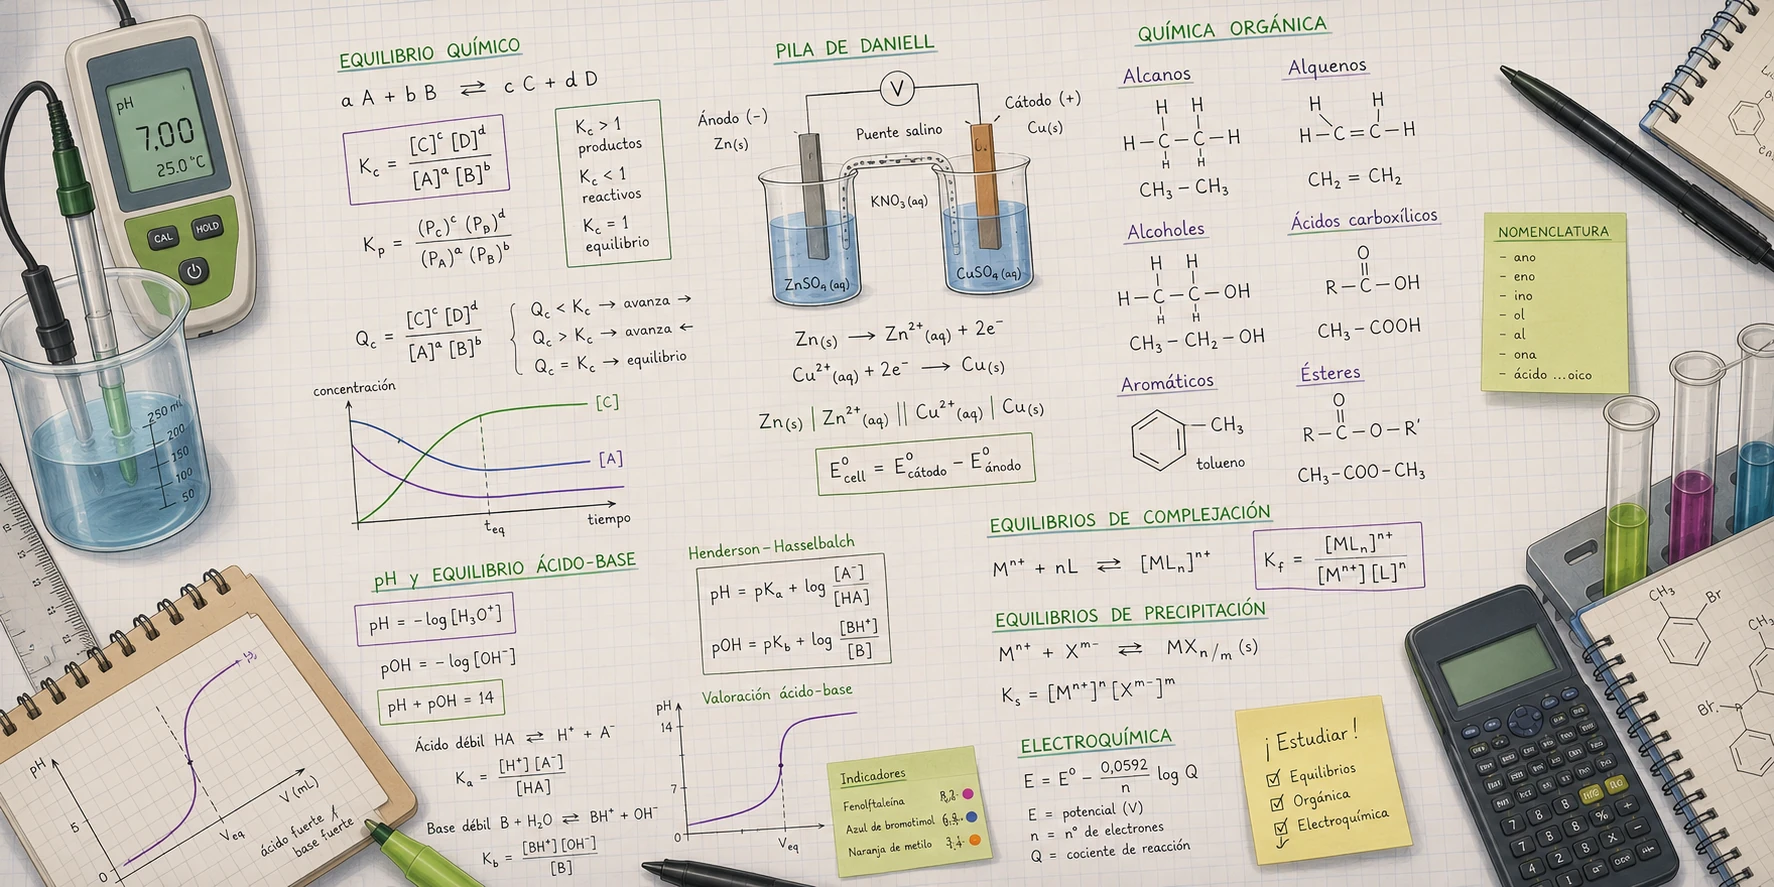 pH
7,00
25.0 °C
CAL
HOLD
250 ml
200
150
100
50
EQUILIBRIO QUÍMICO
a A + b B ⇌ c C + d D
K_c = [C]^c [D]^d / [A]^a [B]^b
K_c > 1
productos
K_c < 1
reactivos
K_c = 1
equilibrio
K_p = (P_C)^c (P_D)^d / (P_A)^a (P_B)^b
Q_c = [C]^c [D]^d / [A]^a [B]^b
Q_c < K_c → avanza →
Q_c > K_c → avanza ←
Q_c = K_c → equilibrio
concentración
[C]
[A]
t_eq
tiempo
PILA DE DANIELL
V
Ánodo (-)
Zn(s)
Puente salino
Cátodo (+)
Cu(s)
KNO₃(aq)
ZnSO₄(aq)
CuSO₄(aq)
Zn(s) → Zn²⁺(aq) + 2e⁻
Cu²⁺(aq) + 2e⁻ → Cu(s)
Zn(s) | Zn²⁺(aq) || Cu²⁺(aq) | Cu(s)
E°cell = E°cátodo − E°ánodo
QUÍMICA ORGÁNICA
Alcanos
H H
H−C−C−H
H H
CH₃ − CH₃
Alquenos
H H
H−C=C−H
CH₂ = CH₂
Alcoholes
H H
H−C−C−OH
H H
CH₃ − CH₂ − OH
Ácidos carboxílicos
O
R−C−OH
CH₃ − COOH
Aromáticos
CH₃
tolueno
Ésteres
O
R−C−O−R'
CH₃−COO−CH₃
NOMENCLATURA
- ano
- eno
- ino
- ol
- al
- ona
- ácido ...oico
pH y EQUILIBRIO ÁCIDO-BASE
pH = −log[H₃O⁺]
pOH = −log[OH⁻]
pH + pOH = 14
Ácido débil HA ⇌ H⁺ + A⁻
K_a = [H⁺][A⁻] / [HA]
Base débil B + H₂O ⇌ BH⁺ + OH⁻
K_b = [BH⁺][OH⁻] / [B]
Henderson-Hasselbalch
pH = pK_a + log [A⁻] / [HA]
pOH = pK_b + log [BH⁺] / [B]
Valoración ácido-base
pH
14
7
0
V_eq
Indicadores
Fenolftaleína
Azul de bromotimol
Naranja de metilo
EQUILIBRIOS DE COMPLEJACIÓN
Mⁿ⁺ + nL ⇌ [MLₙ]ⁿ⁺
K_f = [MLₙ]ⁿ⁺ / [Mⁿ⁺][L]ⁿ
EQUILIBRIOS DE PRECIPITACIÓN
Mⁿ⁺ + Xᵐ⁻ ⇌ MX_n/m (s)
K_s = [Mⁿ⁺]ⁿ [Xᵐ⁻]ᵐ
ELECTROQUÍMICA
E = E° − 0,0592 / n log Q
E = potencial (V)
n = n° de electrones
Q = cociente de reacción
¡Estudiar!
Equilibrios
Orgánica
Electroquímica
pH
5
0
V_eq
V (mL)
ácido fuerte
base fuerte
CH₃
Br
CH₃
Br